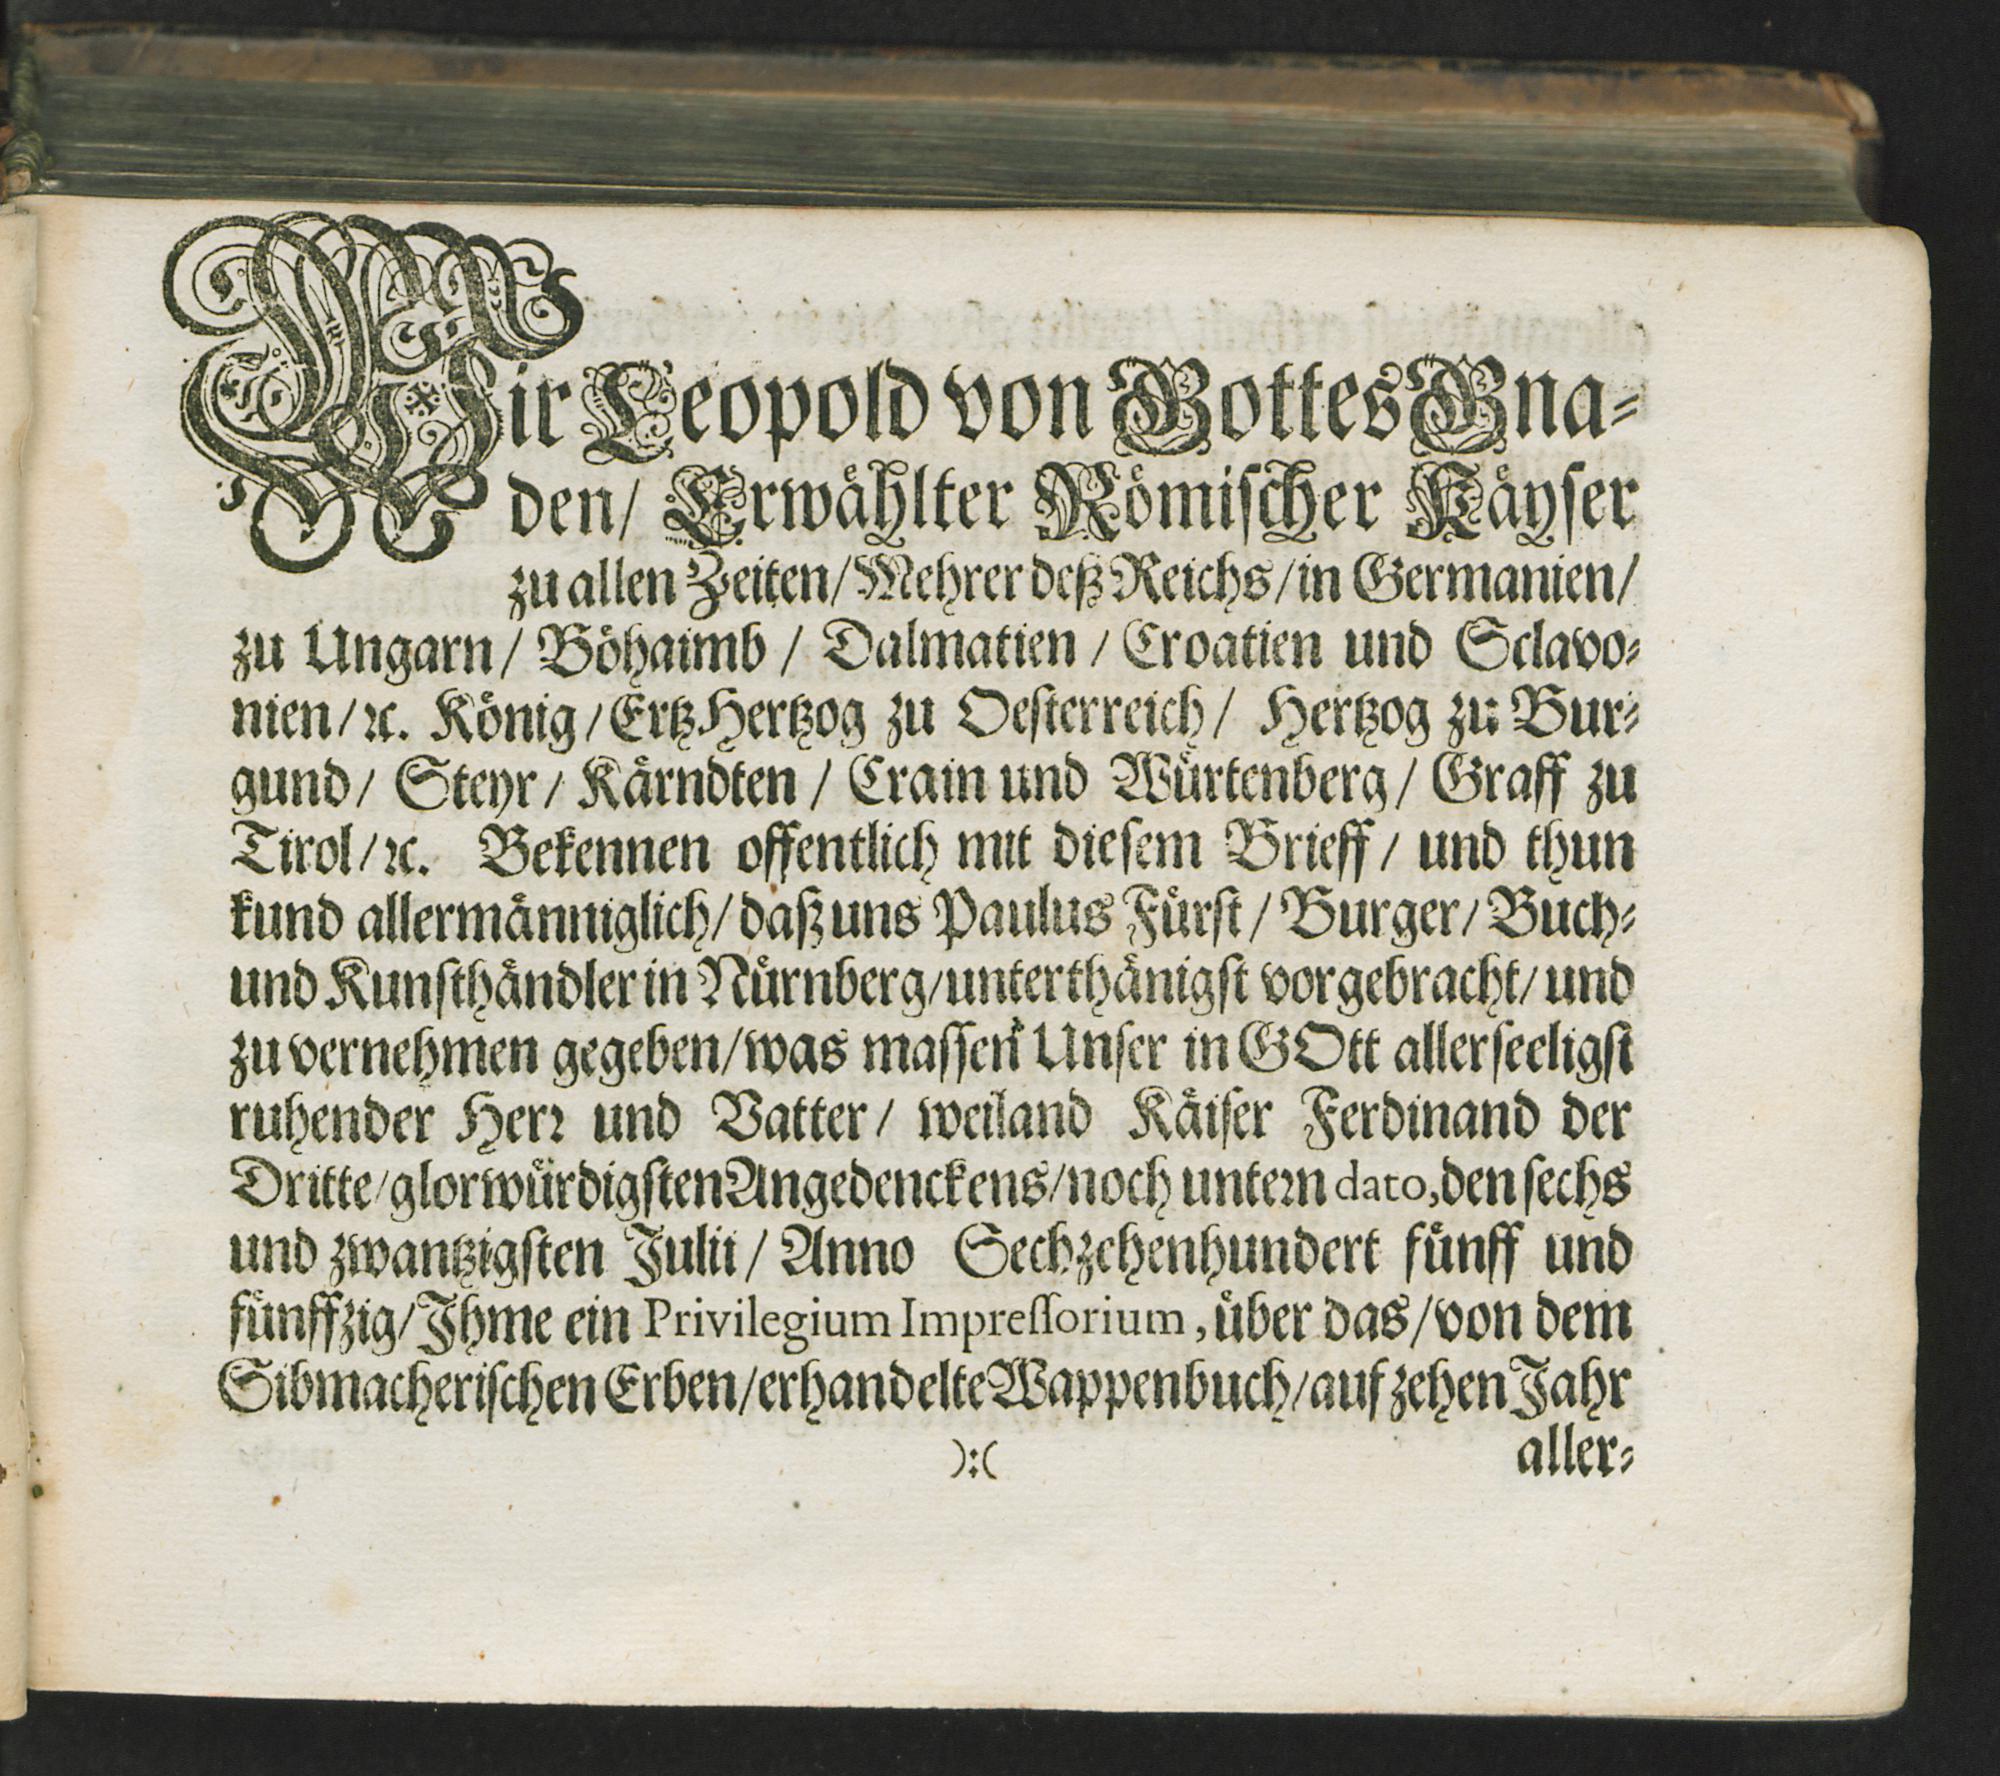 Wir Leopold von Gottes Gna-
den/ Erwählter Römischer Käyser
zu allen Zeiten/Mehrer deß Reichs/in Germanien/
zu Ungarn/ Böhaimb / Dalmatien / Croatien und Sclavo-
nien/ ꝛc. König/ErtzHertzog zu Oesterreich/ Hertzog zu Bur-
gund/ Steyr/ Kärndten / Crain und Würtenberg/ Graff zu
Tirol/ ꝛc. Bekennen offentlich mit diesem Brieff/ und thun
kund allermänniglich/daß uns Paulus Fürst/ Burger/Buch-
und Kunsthändler in Nürnberg/unterthänigst vorgebracht/und
zu vernehmen gegeben/was massen Unser in GOtt allerseeligst
ruhender Herꝛ und Vatter/ weiland Käiser Ferdinand der
Dritte/glorwürdigsten Angedenckens/noch unteꝛn dato,den sechs
und zwantzigsten Julii/ Anno Sechzehenhundert fünff und
fünffzig/Ihme ein Privilegium Impressorium, über das/von dem
Sibmacherischen Erben/erhandelte Wappenbuch/auf zehen Jahr
):( aller-